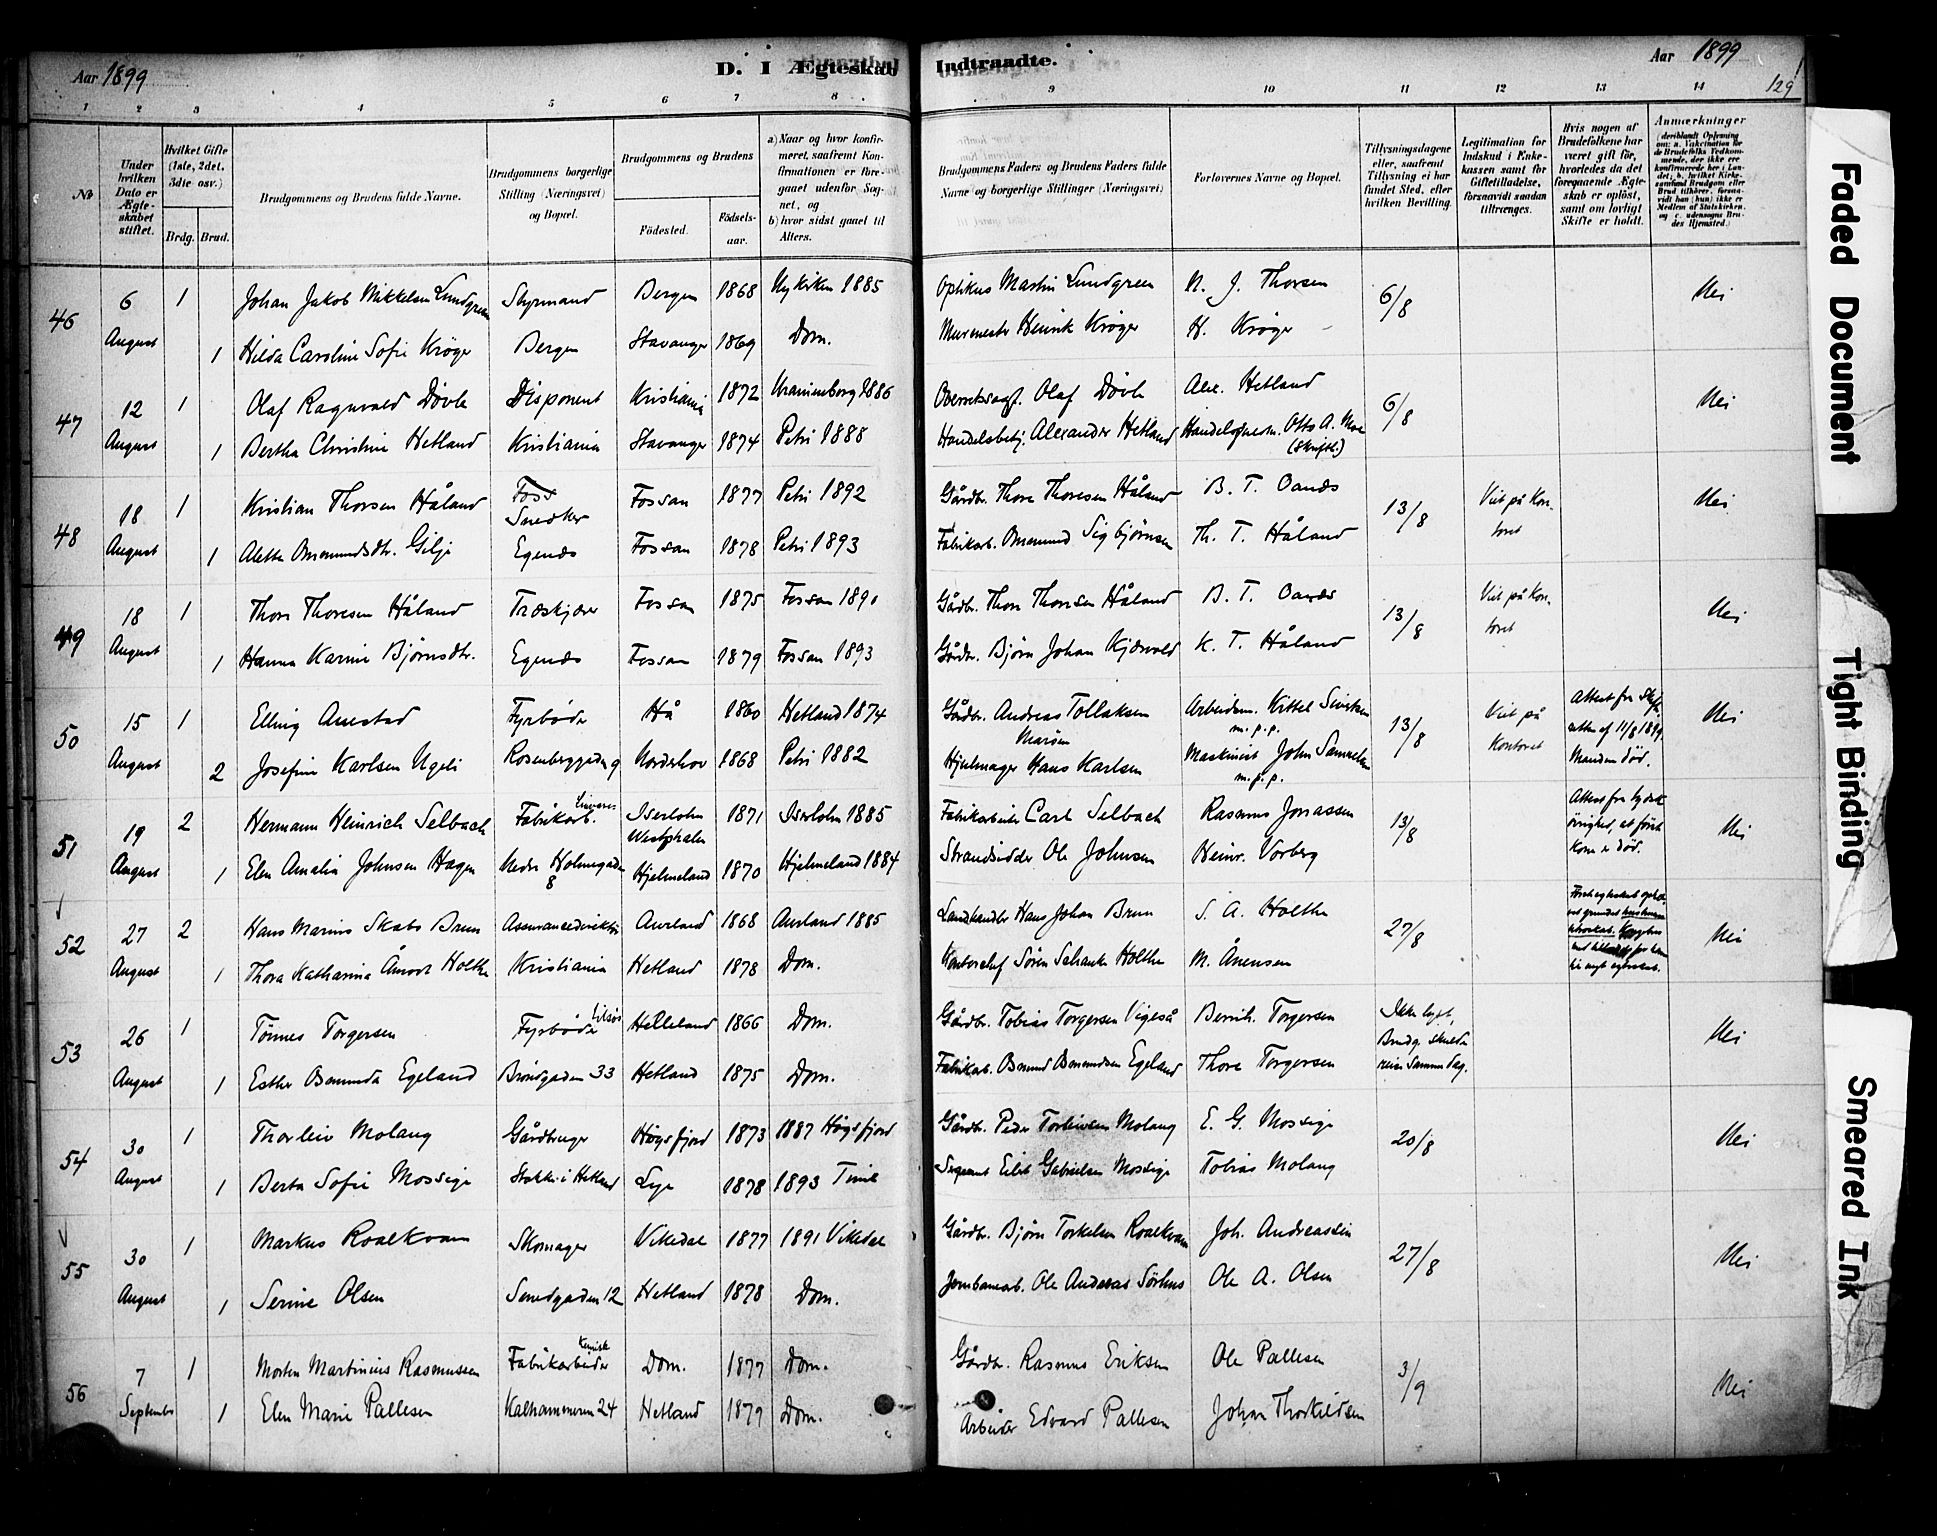 Aar 1899
D. I Ægteskab Indtraadte.
Aar 1899
129
1 2 3 4 5 6 7 8 9 10 11 12 13 14
No
Under hvilken Dato er Ægteskabet stiftet.
Hvilket Gifte (1ste, 2det, 3die osv.)
Brdg. Brud.
Brudgommens og Brudens fulde Navne.
Brudgommens borgerlige Stilling (Næringsvei) og Bopæl.
Brudgommens og Brudens
Fødested. Fødselsaar.
a) Naar og hvor konfirmeret, saafremt Konfirmationen er foregaaet udenfor Sognet, og
b) hvor sidst gaaet til Alters.
Brudgommens Faders og Brudens Faders fulde Navne og borgerlige Stillinger (Næringsvei)
Forlovernes Navne og Bopæl.
Tillysningsdagene eller, saafremt Tillysning ei har fundet Sted, efter hvilken Bevilling.
Legitimation for Indskud i Enkekassen samt for Giftetilladelse, forsaavidt saadan tiltrænges.
Hvis nogen af Brudefolkene har været gift før, hvorledes da det foregaaende Ægteskab er opløst, samt om lovligt Skifte er holdt.
Anmærkninger
46 6 August 1 Johan Jakob Mikkelsen Lundgreen Styrmand Bergen 1868 Nykirken 1885 Optikus Martin Lundgreen N. J. Thorsen 6/8 Nei
1 Hilda Caroline Sofie Krøger Bergen Stavanger 1869 Dom. Murmester Henrik Krøger H. Krøger
47 12 August 1 Olaf Ragnvald Døvle Disponent Kristiania 1872 Uranienborg 1886 Overretssagf. Olaf Døvle Alex. Hetland 6/8 Nei
1 Bertha Christine Hetland Kristiania Stavanger 1874 Petri 1888 Handelsbetj. Alexander Hetland Otto A. Moe (Skriftl.)
48 18 August 1 Kristian Thorsen Håland Foss Snedker Fossan 1877 Petri 1892 Gårdbr. Thore Thoresen Håland B. T. Oanes 13/8 Viist på Kontoret Nei
1 Alette Omundsdtr. Gilje Egenæs Fossan 1878 Petri 1893 Fabrikarb. Omund Sigbjørnsen Th. T. Håland
49 18 August 1 Thore Thoresen Håland Træskjærer Fossan 1875 Fossan 1890 Gårdbr. Thore Thoresen Håland B. T. Oanes 13/8 Viist på Kontoret Nei
1 Hanna Karine Bjørnsdtr. Egenæs Fossan 1879 Fossan 1893 Gårdbr. Bjørn Johan Kjærvold K. T. Håland
50 15 August 1 Elling Auestad Fyrbøder Hå 1860 Hetland 1874 Gårdbr. Andreas Tollaksen Arbeidsm. Kittel Sivertsen m.p.p. 13/8 Viist på Kontoret Attest fra Skifteretten af 11/8 1899. Manden død. Nei
2 Josefine Karlsen Ugeli Rosenberggaden 9 Norderhov 1868 Petri 1882 Hjulmager Hans Karlsen Maskinist John Samuelsen m.p.p.
51 19 August 2 Hermann Heinrich Selbach Fabrikarb. Iserlohn Westphalen 1871 Iserlohn 1885 Fabrikarbeider Carl Selbach Rasmus Jonassen 13/8 Attest fra tydsk øvrighed, at første Kone er død. Nei
1 Elen Amalia Johnsen Hagen Nedre Holmegaden 8 Hjelmeland 1870 Hjelmeland 1884 Strandsidder Ole Johnsen Heinr. Vorberg
52 27 August 2 Hans Marius Skabo Brun Assurancedirektør Aurland 1868 Aurland 1885 Landhandler Hans Johan Brun S. A. Holthe 27/8 Nei
1 Thora Katharina Holthe Kristiania Hetland 1878 Dom. Kontorchef Søren Schanke Holthe M. Ånensen
53 26 August 1 Tønnes Torgersen Fyrbøder Helleland 1866 Dom. Gårdbr. Tobias Torgersen Vigeså Bernh. Torgersen Ikke lyst, Brudg. skulde reise samme dag. Nei
1 Esther Osmunda Egeland Brøndgaden 33 Hetland 1875 Dom. Fabrikarb. Osmund Osmundsen Egeland Thore Torgersen
54 30 August 1 Thorleiv Molaug Gårdbruger Høgsfjord 1873 1887 Høgsfjord Gårdbr. Peder Torleivsen Molaug E. G. Mossige 20/8 Nei
1 Berta Sofie Mossige Stokke i Hetland Lye 1878 1893 Time Sergeant Eilert Gabrielsen Mossige Tobias Molaug
55 30 August 1 Markus Roalkvam Skomager Vikedal 1877 1891 Vikedal Gårdbr. Bjørn Torkelsen Roalkvam Joh. Andreassen 27/8 Nei
1 Serine Olsen Smedgaden 12 Hetland 1878 Dom. Jernbanearb. Ole Andreas Sørhus Ole A. Olsen
56 7 September 1 Morten Martinius Rasmussen Kemisk Fabrikarbeider Dom. 1877 Dom. Gårdbr. Rasmus Eriksen Ole Pallesen 3/9 Nei
1 Elen Marie Pallesen Kalhammeren 24 Hetland 1877 Dom. Arbeider Edvard Pallesen Johan Thorkildsen
Faded Document
Tight Binding
Smeared Ink